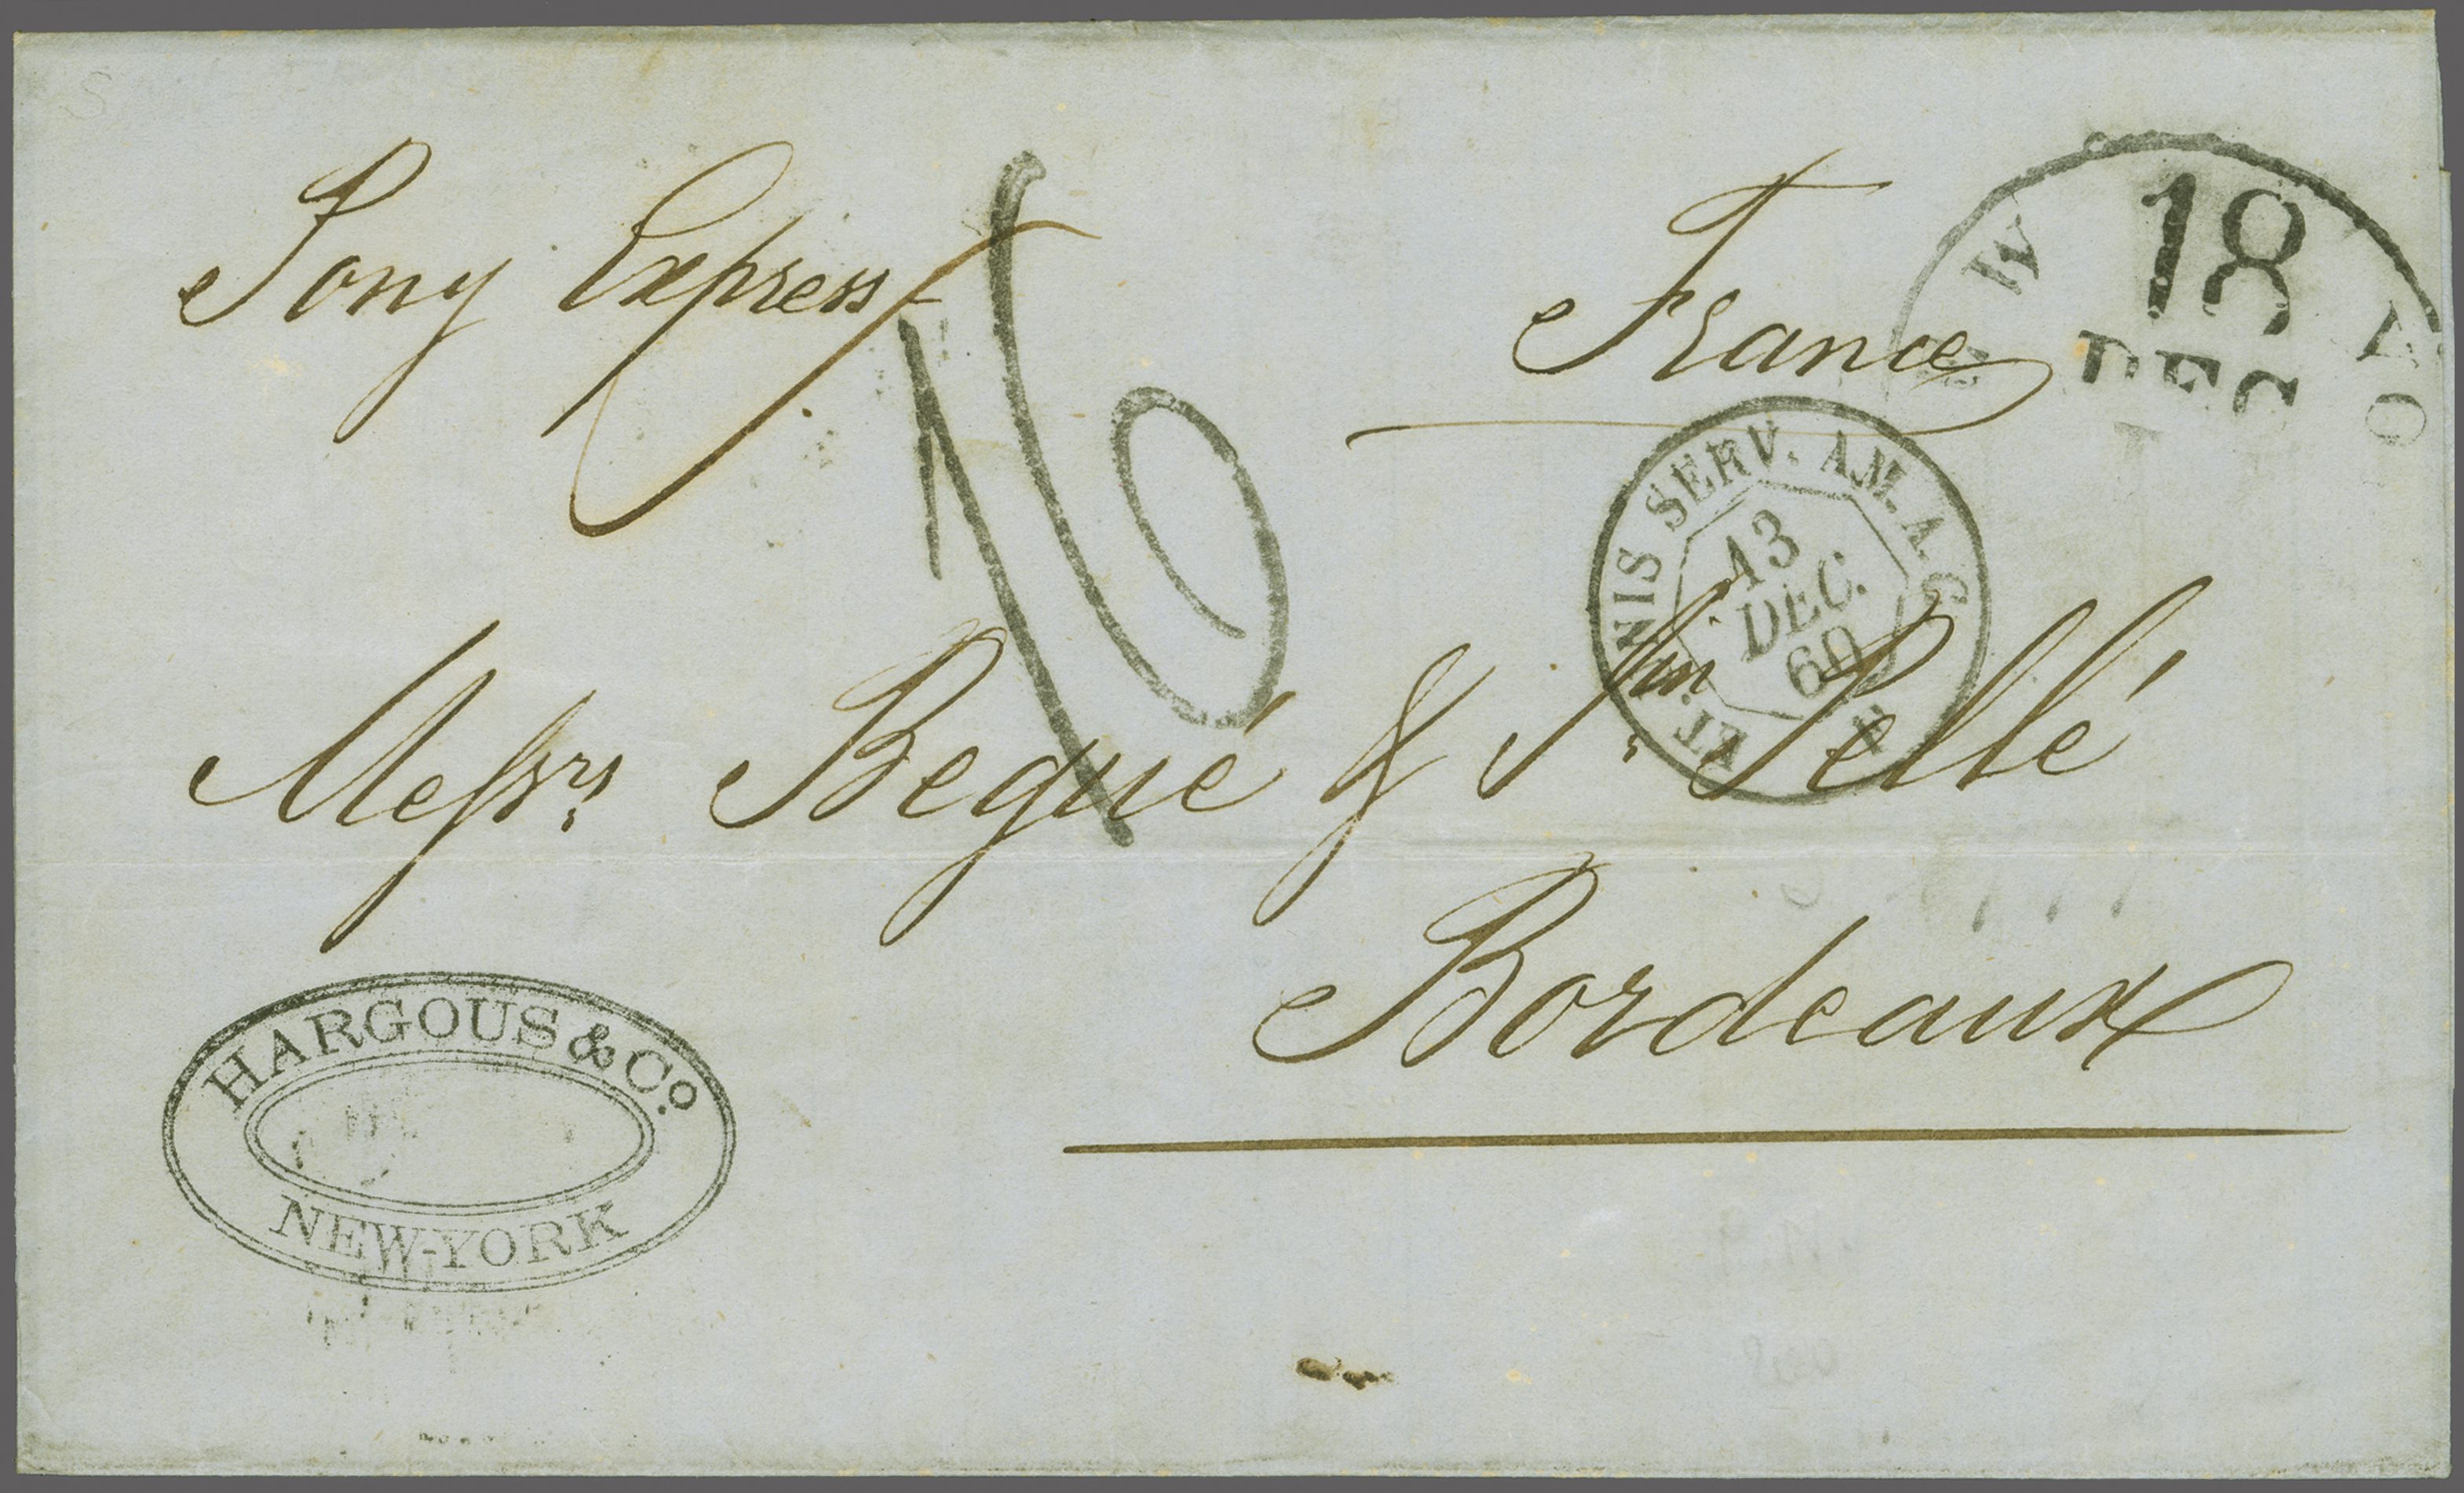 Pony Express
France
W YO
18
DEC
16
ET. UNIS SERV. AM. A. C.
13
DEC.
60
Messrs Begué & Pellé
Bordeaux
HARGOUS & Co.
NEW-YORK